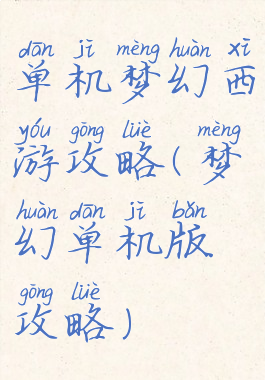 dān jī mèng huàn xī
单机梦幻西
yóu gōng lüè mèng
游攻略(梦
huàn dān jī bǎn
幻单机版
gōng lüè
攻略)